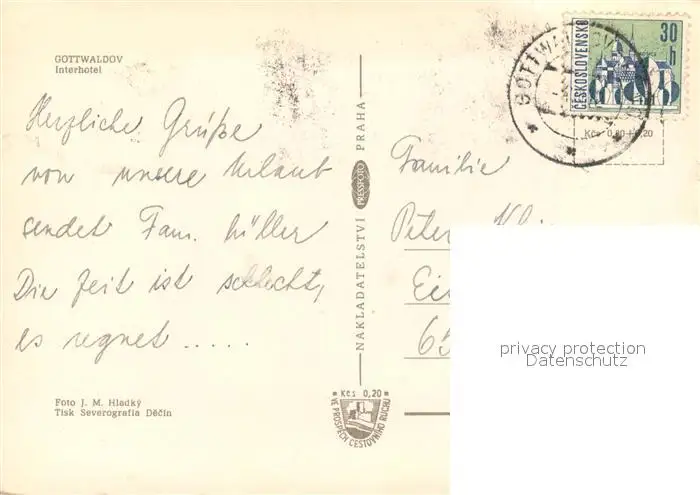 GOTTWALDOV
Interhotel
Herzliche Grüße
von unsere Urlaub
sendet Fam. Müller
Die Zeit ist schlecht,
es regnet .....
Foto J. M. Hladký
Tisk Severografia Děčín
NAKLADATELSTVÍ PRESSFOTO PRAHA
Kčs 0,20
VE PROSPĚCH CESTOVNÍHO RUCHU
GOTTWALDOV
ČESKOSLOVENSKO
30
h
Kčs 0,80 + 0,20
Familie
Peter
65
privacy protection
Datenschutz